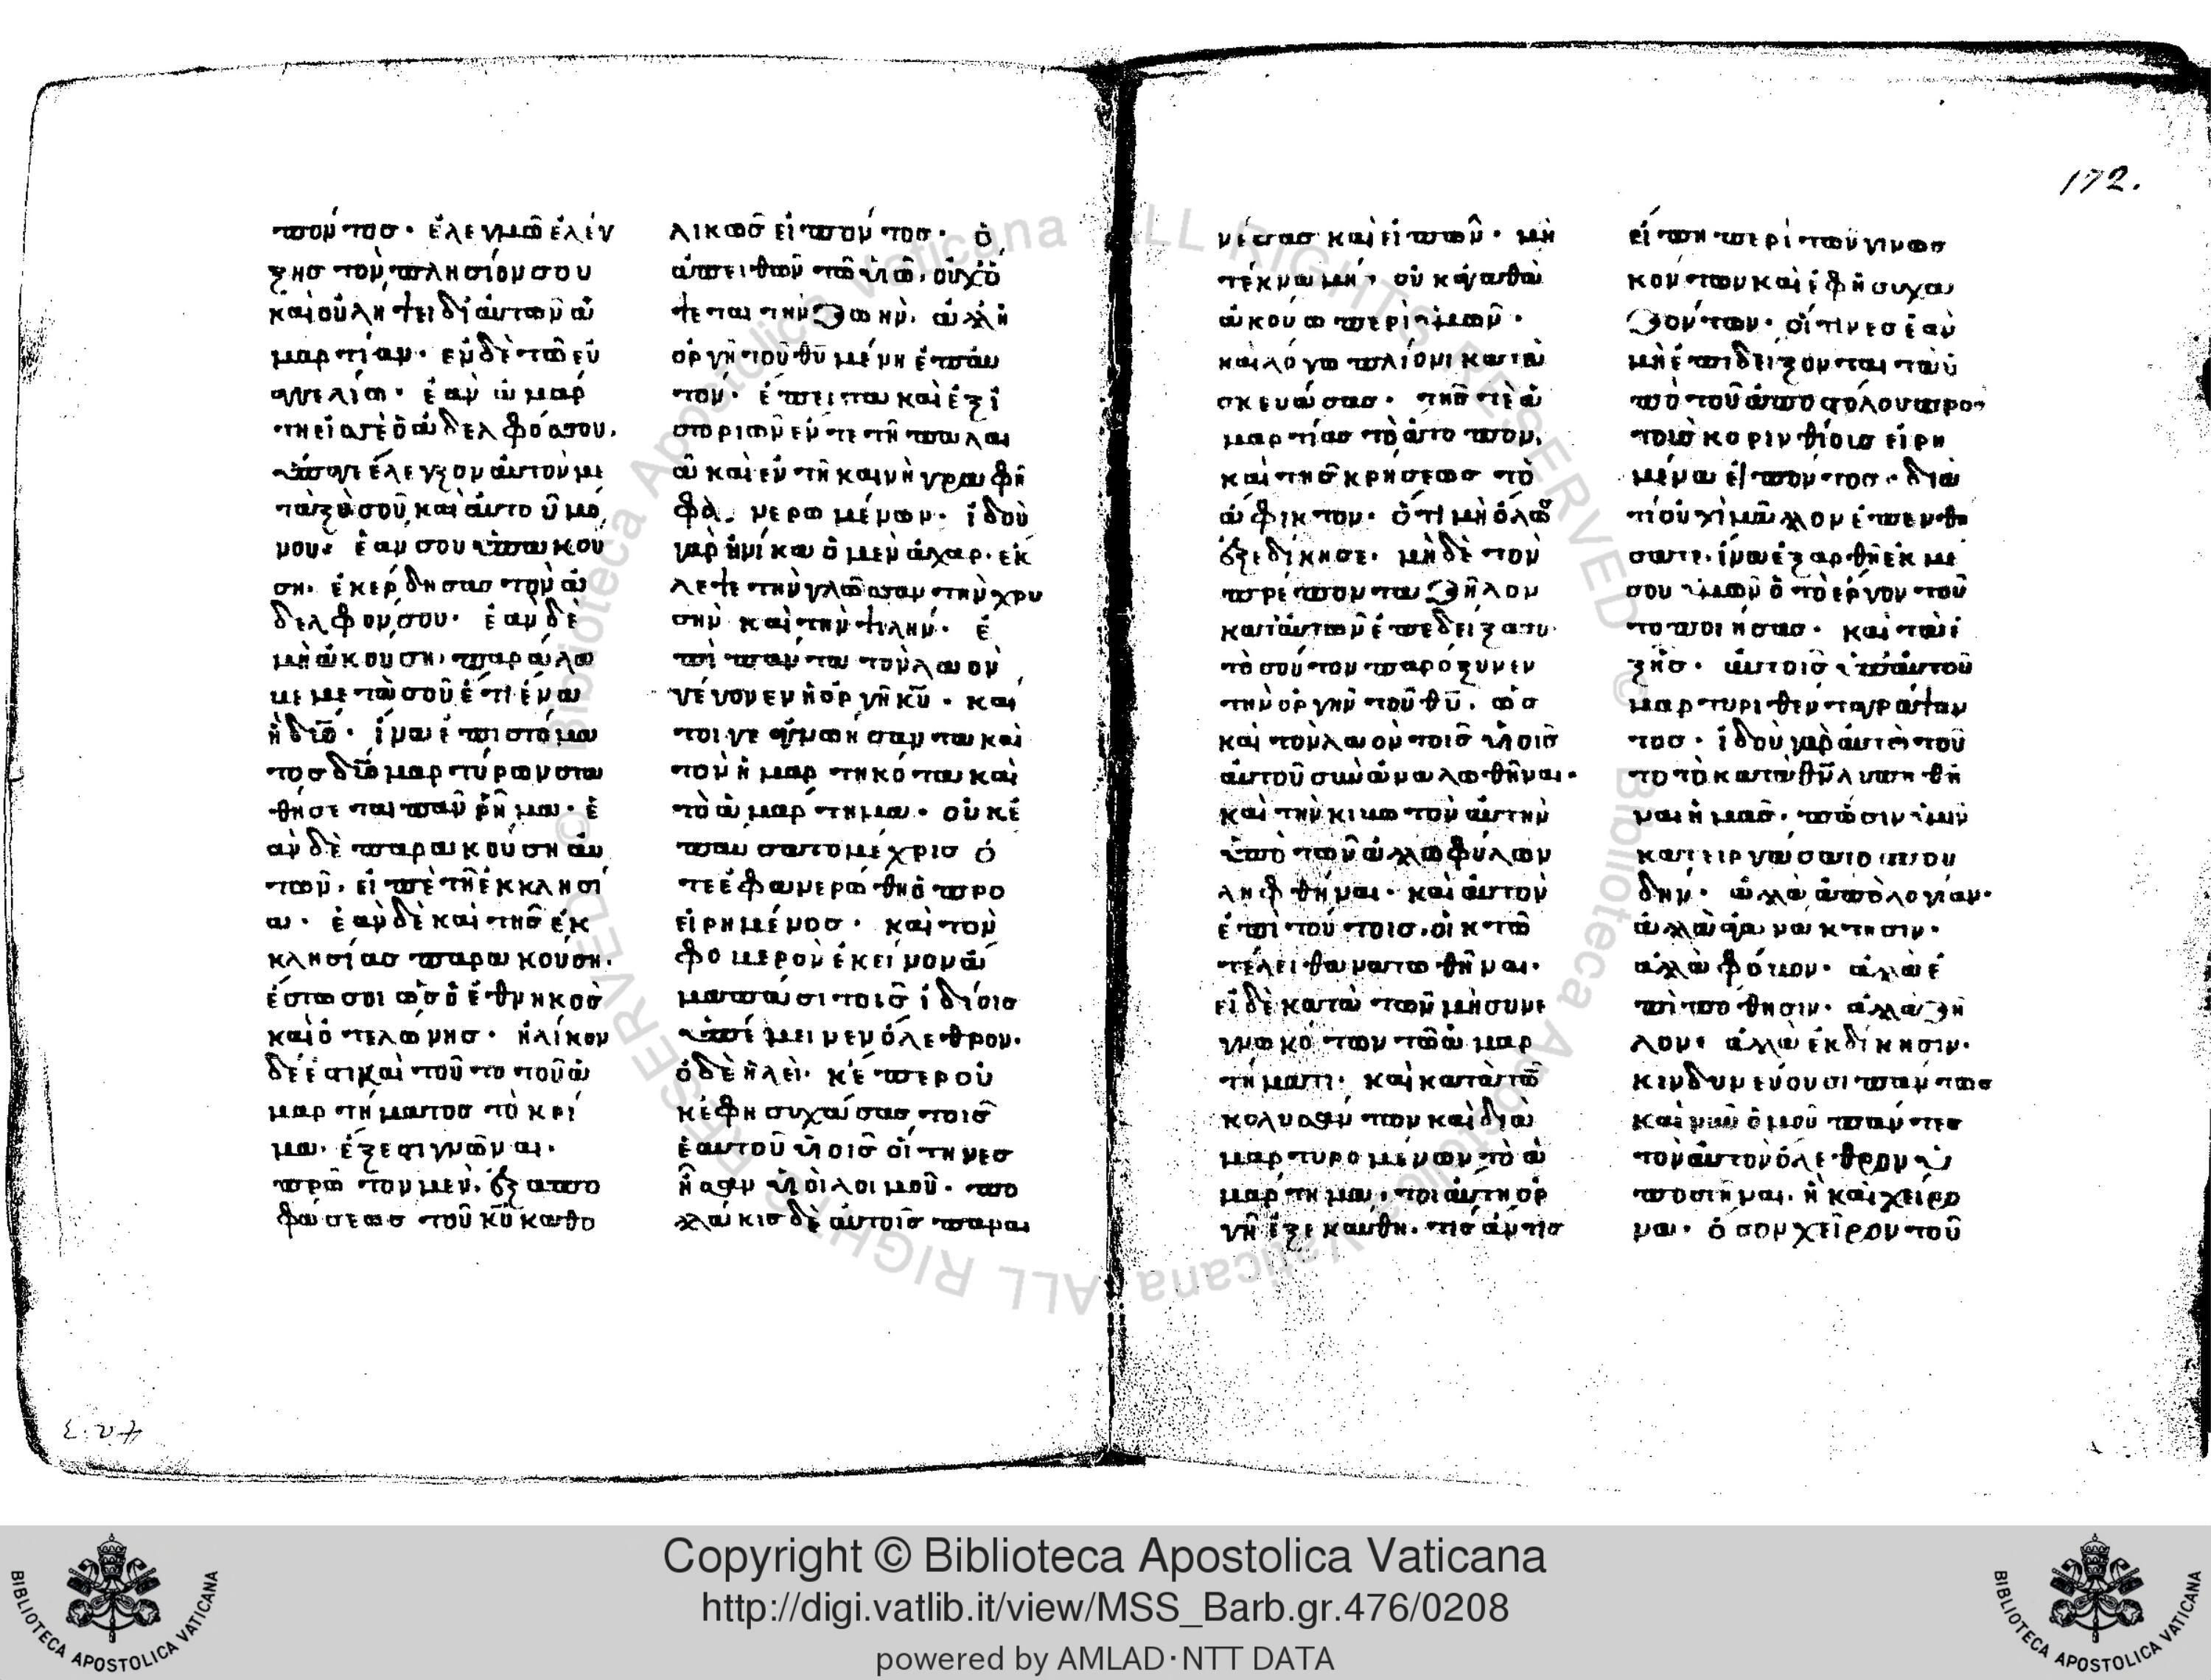 πόντος· ἐλεγμῶ ἐλέγ
ξης τὸν πλησίον σου
καὶ οὐ λήψει δι' αὐτὸν ἁ
μαρτίαν· ἐν δὲ τῶ εὐ
αγγελίω· ἐὰν ἁμάρ
τη εἰς σὲ ὁ ἀδελφός σου,
ὕπαγε ἔλεγξον αὐτὸν με
ταξὺ σοῦ καὶ αὐτοῦ μό
νου· ἐάν σου ὑπακού
ση· ἐκέρδησας τὸν ἀ
δελφόν σου· ἐὰν δὲ
μὴ ἀκούση, παράλα
βε μετὰ σοῦ ἔτι ἕνα
ἢ δύο· ἵνα ἐπὶ στόμα
τος δύο μαρτύρων στα
θήσεται πᾶν ῥῆμα· ἐ
ὰν δὲ παρακούση αὐ
τῶν, εἰπὲ τῆ ἐκκλησί
α· ἐὰν δὲ καὶ τῆς ἐκ
κλησίας παρακούση,
ἔστω σοι ὡς ὁ ἐθνηκὸς
καὶ ὁ τελώνης· ἡλίκον
δέ ἐστι καὶ τοῦτο τοῦ ἁ
μαρτήματος τὸ κρί
μα· ἔξεστι γνῶναι.
πρῶτον μὲν, ἐξ ἀπο
φάσεως τοῦ κυ καθο
λικῶς εἰπόντος· ὁ
ἀπειθῶν τῶ υἱῶ, οὐκ ὄ
ψεται τὴν ζωήν, ἀλλ' ἡ
ὀργὴ τοῦ θυ μένη ἐπ' αὐ
τόν· ἔπειτα καὶ ἐξ ἱ
στοριῶν ἔν τε τῆ παλαι
ᾶ καὶ ἐν τῆ καινῆ γραφῆ
φανερωμένων· ἰδοὺ
γὰρ ἡνίκα ὁ μὲν ἄχαρ· ἔκ
λεψε τὴν γλῶσσαν τὴν χρυ
σὴν καὶ τὴν ψιλήν· ἐ
πὶ πάντα τὸν λαὸν
γέγονεν ἡ ὀργὴ κυ· καί
τοι γε ἀγνωήσαντα καὶ
τὸν ἡμαρτηκότα καὶ
τὸ ἁμάρτημα· οὐκ ἐ
παύσατο μέχρις ὅ
τε ἐφανερώθη ὁ προ
ειρημένος· καὶ τὸν
φοβερὸν ἐκεῖνον ἅ
μα πᾶσι τοῖς ἰδίοις
ὑπέμεινεν ὄλεθρον·
ὁ δὲ ἡλεὶ· κ' ἕτερου
κ' ἐφησυχάσας τοῖς
ἑαυτοῦ υἱοῖς οἵτηνες
ἦσαν υἱοὶ λοιμοῦ· πο
λλάκις δὲ αὐτοῖς παραι
νέσας καὶ εἰπὼν· μὴ
τέκνα μὴ, οὐκ ἀγαθὴ
ἀκούω περὶ ὑμῶν·
καὶ λόγω πλίονι κατα
σκευάσας· τῆς τε ἁ
μαρτίας τὸ ἄτοπον,
καὶ τῆς κρήσεως τὸ
ἄφικτον· ὅτι μὴ ὅλως
ἐξεδίκησε· μηδὲ τὸν
πρέποντα ζῆλον
κατ' αὐτῶν ἐπεδείξατο·
τοσοῦτον παρόξυνεν
τὴν ὀργὴν τοῦ θυ, ὡς
καὶ τὸν λαὸν τοῖς υἱοῖς
αὐτοῦ συναναλωθῆναι·
καὶ τὴν κιβωτὸν αὐτὴν
ὑπὸ τῶν ἀλλοφύλων
ληφθῆναι· καὶ αὐτὸν
ἐπὶ τούτοις, οἰκτῶ
τέλει θανατωθῆναι·
εἰ δὲ κατὰ τῶν μὴ συνε
γνωκότων τῶ ἁμαρ
τήματι· καὶ κατὰ τῶ
κολυσάντων καὶ δια
μαρτυρομένων τὸ ἁ
μάρτημα, τοιαύτη ὀρ
γὴ ἐξεκαύθη, τίς ἂν τίς
εἴπη περὶ τῶν γινωσ
κόντων καὶ ἐφησυχα
ζόντων· οἵτινες ἐὰν
μὴ ἐπιδείξονται τὰ ὑ
πὸ τοῦ ἀποστόλου προς
τοὺς κορινθίοις εἰρη
μένα εἰπόντος· δια
τί οὐχὶ μᾶλλον ἐπενθή
σατε, ἵνα ἐξαρθῆ ἐκ μέ
σου ὑμῶν ὁ τὸ ἔργον τοῦ
το ποιήσας· καὶ τὰ ἑ
ξῆς· αὐτοῖς ὑπ' αὐτοῦ
μαρτυρηθέντα γράψαν
τος· ἰδοὺ γὰρ αὐτὸ τοῦ
το τὸ κατὰ θν λυπηθῆ
ναι ἡμᾶς· πόσιν ὑμῖν
κατειργάσατο σπου
δήν· ἀλλὰ ἀπολογίαν·
ἀλλὰ ἀγανάκτησιν·
ἀλλὰ φόβον· ἀλλὰ ἐ
πιπόθησιν· ἀλλὰ ζῆ
λον· ἀλλὰ ἐκδίκησιν·
κινδυνεύουσι πάντως
καὶ νῦν ὁμοῦ πάντες
τὸν αὐτὸν ὄλεθρον ὑ
ποστῆναι, ἢ καὶ χείρο
να· ὅσον χεῖρον τοῦ
172.
Copyright © Biblioteca Apostolica Vaticana
http://digi.vatlib.it/view/MSS_Barb.gr.476/0208
powered by AMLAD·NTT DATA
BIBLIOTECA APOSTOLICA VATICANA
BIBLIOTECA APOSTOLICA VATICANA